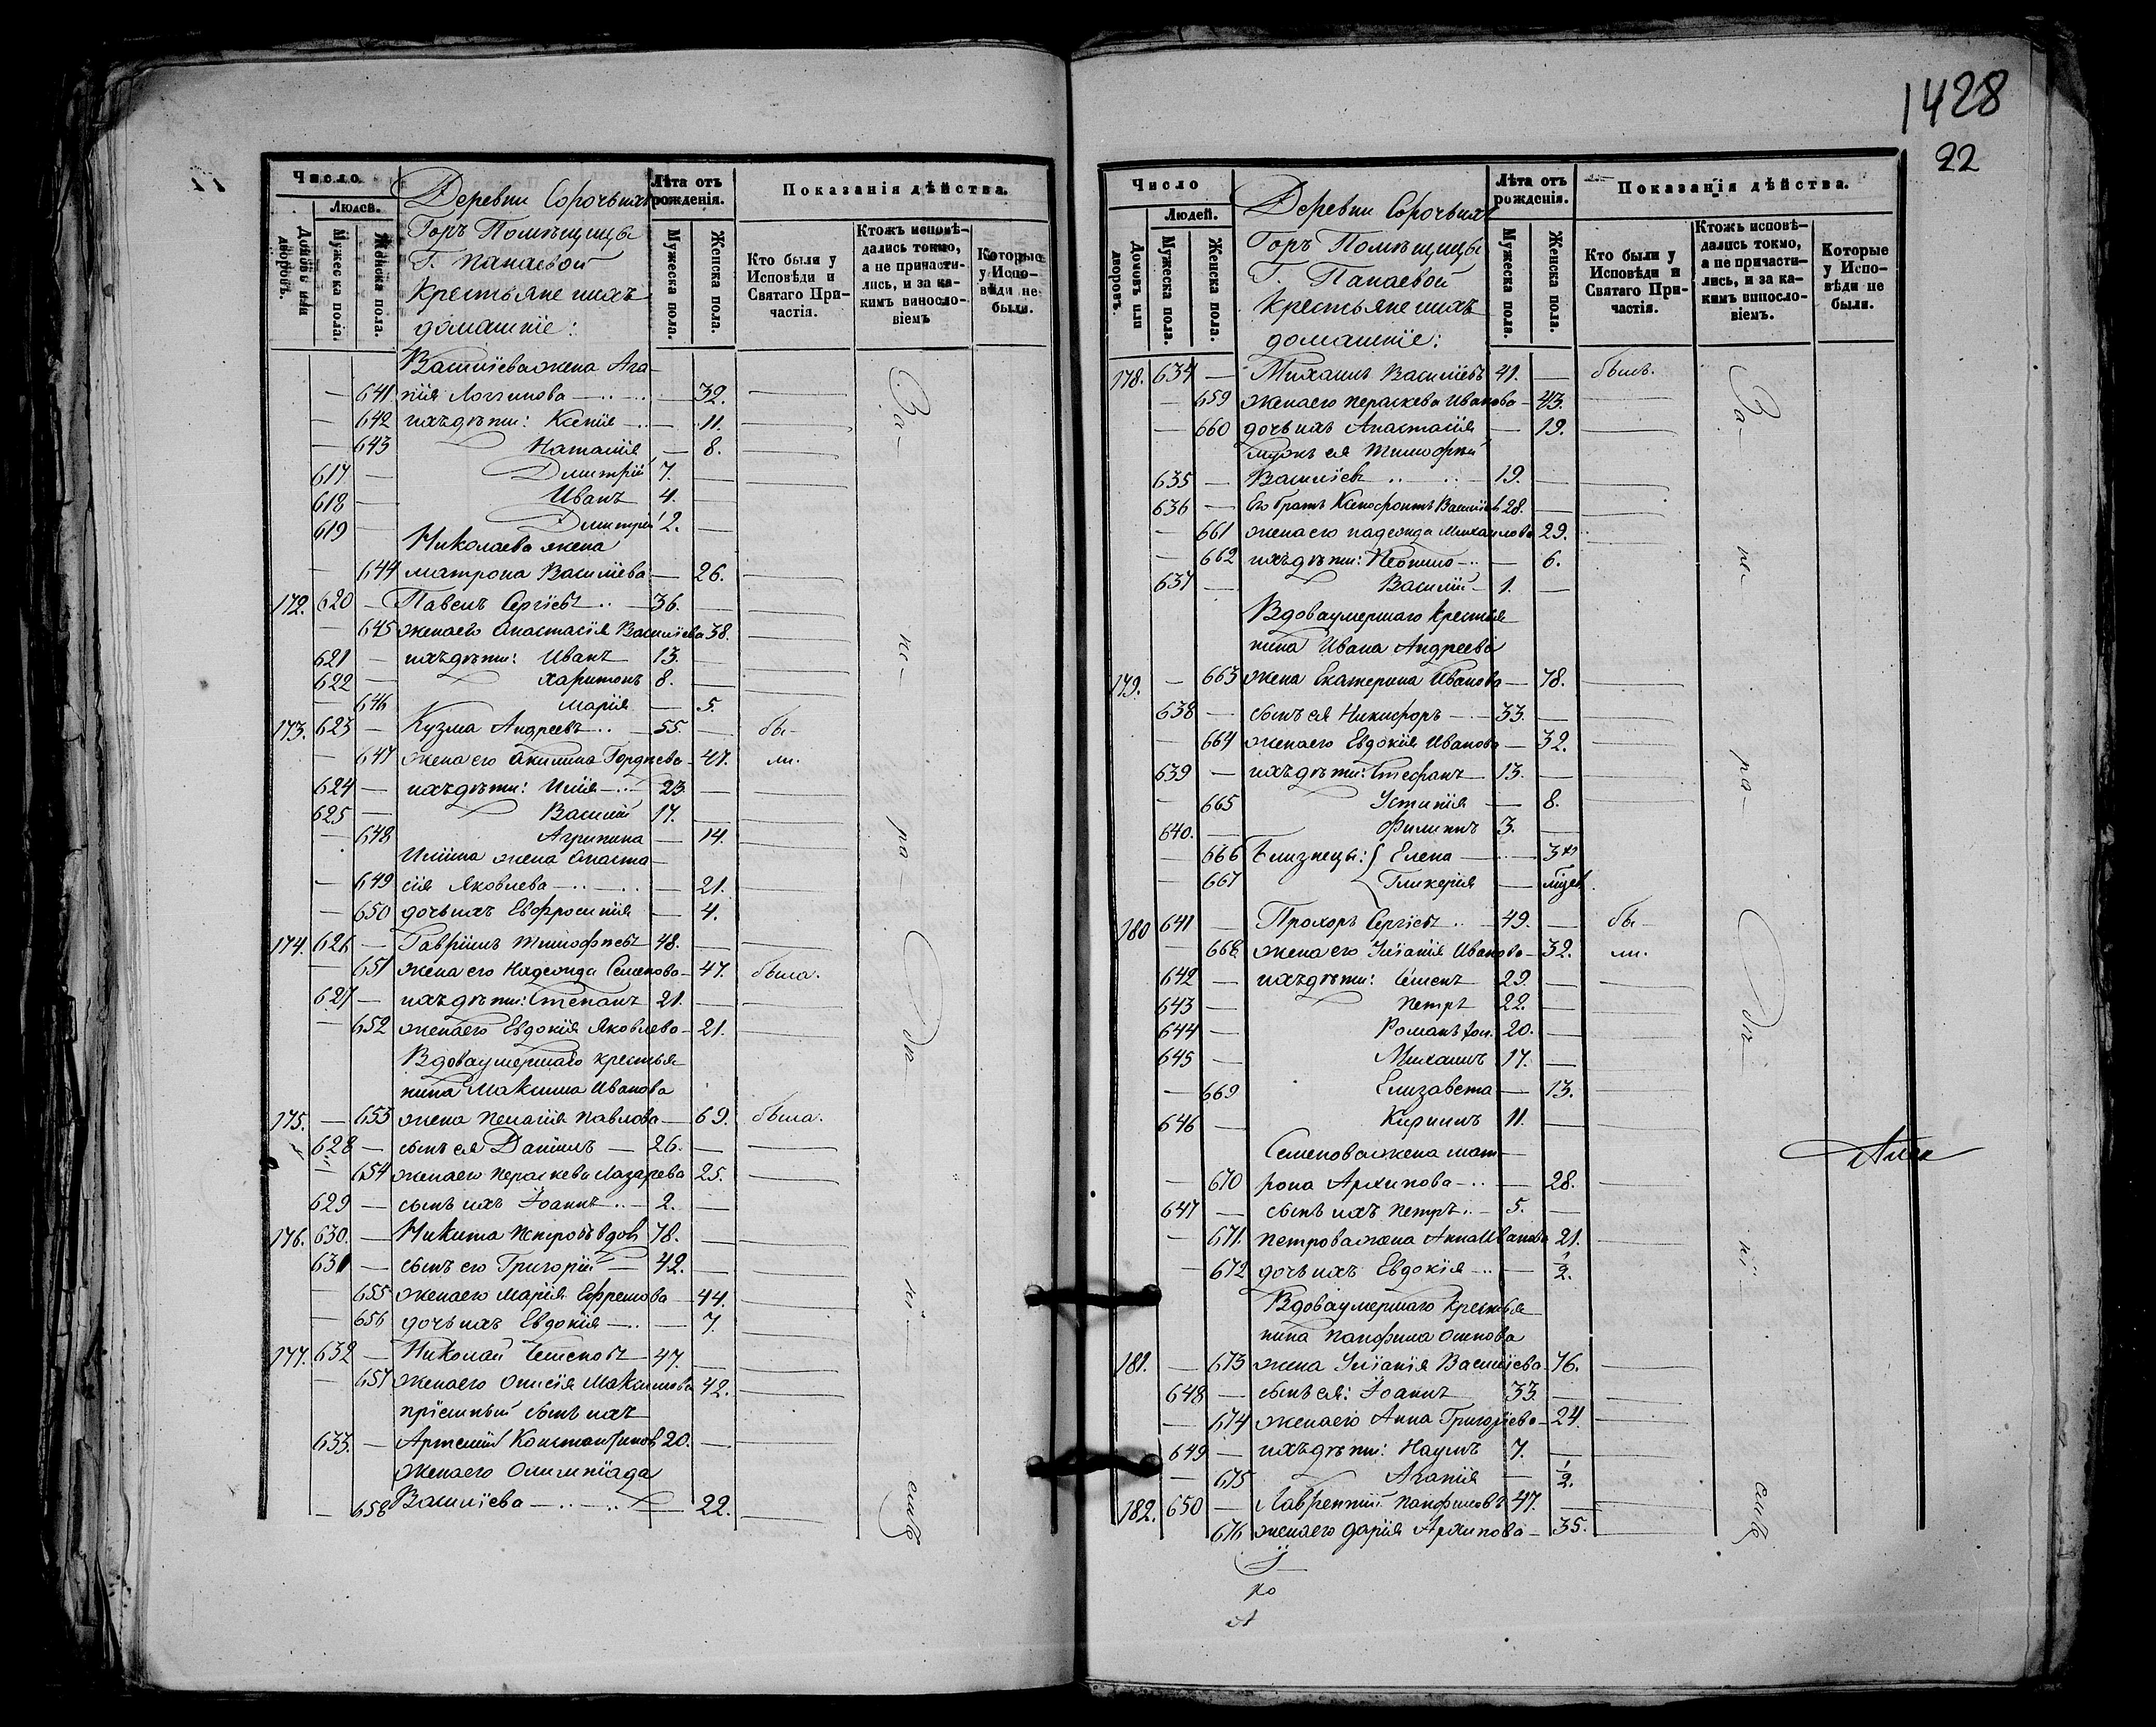 1428
22
Число
Людей.
Домовъ или дворовъ.
Мужеска пола.
Женска пола.
Деревни Сорочьихъ
Горъ Помѣщицы
Г. Панаевой
Крестьяне и ихъ
домашніе:
Лѣта отъ рожденія.
Мужеска пола.
Женска пола.
Показанія дѣйства.
Кто были у Исповѣди и Святаго Причастія.
Ктожъ исповѣдались токмо, а не причастились, и за какимъ винословіемъ
Которые у Исповѣди не были.
Василіева жена Ага-
— 641 нія Логгинова — 32.
— 642 ихъ дѣти: Ксенія — 11.
— 643 Наталія — 8.
617 — Димитрій 7. —
618 — Иванъ 4. —
619 — Димитрій 2. —
Николаева жена
— 644 Матрона Василіева — 26.
172. 620 — Павелъ Сергіевъ 36. —
— 645 жена его Анастасія Василіева 38.
621 — ихъ дѣти: Иванъ 13. —
622 — Харитонъ 8. —
— 646 Марія — 5.
173. 623 — Кузма Андреевъ 55. — бы-
— 647 жена его Акилина Гордѣева — 47. ли.
624 — ихъ дѣти: Илія 23. —
625 — Василій 17. —
— 648 Агрипина — 14.
Иліина жена Анаста-
— 649 сія Яковлева — 21.
— 650 дочь ихъ Евфросинія — 4.
174. 626 — Гавріилъ Тимофѣевъ 48. —
— 651 жена его Надежда Семенова — 47. была.
627 — ихъ дѣти: Степанъ 21. —
— 652 жена его Евдокія Яковлева — 21.
Вдова умершаго крестья
нина Максима Иванова
175. — 653 жена Пелагія Павлова — 69. была.
628 — сынъ ея Даніилъ 26. —
— 654 жена его Параскева Лазарева 25.
629 — сынъ ихъ Іоаннъ 2. —
176. 630. — Никита Петровъ вдов 78. —
631 — сынъ его Григорій 42. —
— 655 жена его Марія Ефремова — 44.
— 656 дочь ихъ Евдокія — 7.
177. 632 — Николай Семеновъ 47. —
— 657 жена его Анисія Максимова 42.
пріемный сынъ ихъ
633. — Артемій Константинов 20. —
жена его Олимпіада
— 658 Василіева — 22.
За-
не-
ра-
дѣ-
ні-
емъ
Число
Людей.
Домовъ или дворовъ.
Мужеска пола.
Женска пола.
Деревни Сорочьихъ
Горъ Помѣщицы
Г. Панаевой
Крестьяне и ихъ
домашніе:
Лѣта отъ рожденія.
Мужеска пола.
Женска пола.
Показанія дѣйства.
Кто были у Исповѣди и Святаго Причастія.
Ктожъ исповѣдались токмо, а не причастились, и за какимъ винословіемъ.
Которые у Исповѣди не были.
178. 634 — Михаилъ Василіевъ 41. — былъ.
— 659 жена его Параскева Иванова — 43.
— 660 дочь ихъ Анастасія — 19.
мужъ ея Тимофей
635 — Василіевъ 19. —
636 — Его братъ Ксенофонтъ Василіевъ 28. —
— 661 жена его Надежда Михаилова 29.
— 662 ихъ дѣти: — 6.
637 — Василій 1. —
Вдова умершаго крестья
нина Ивана Андреева
179. — 663 жена Екатерина Иванова — 78.
638 — сынъ ея Никифоръ 33. —
— 664 жена его Евдокія Иванова — 32.
639 — ихъ дѣти: Стефанъ 13. —
— 665 Устинія — 8.
640. — Филиппъ 3. —
— 666 Близнецы: { Елена — 3хъ
— 667 Гликерія — мѣсяц.
180 641 — Прохоръ Сергіевъ 49. — бы-
— 668 жена его Уліанія Иванова — 32. ли.
642 — ихъ дѣти: Семенъ 29. —
643 — Петръ 22. —
644 — Романъ хол. 20. —
645 — Михаилъ 17. —
— 669 Елизавета — 13.
646 — Кириллъ 11. —
Семенова жена Мат-
— 670 рона Архипова — 28.
647 — сынъ ихъ Петръ 5. —
— 671. Петрова жена Анна Иванова 21.
— 672 дочь ихъ Евдокія — 1/2.
Вдова умершаго крестья
нина Панфила Осипова
181. — 673 жена Уліанія Василіева 76.
648 — сынъ ея: Іоаннъ 33. —
— 674 жена его Анна Григоріева — 24.
649 — ихъ дѣти: Наумъ 7. —
— 675 Агапія — 1/2.
182. 650 — Лаврентій Панфиловъ 47. —
676 жена его Дарія Архипова — 35.
За-
не-
ра-
дѣ-
ні-
емъ